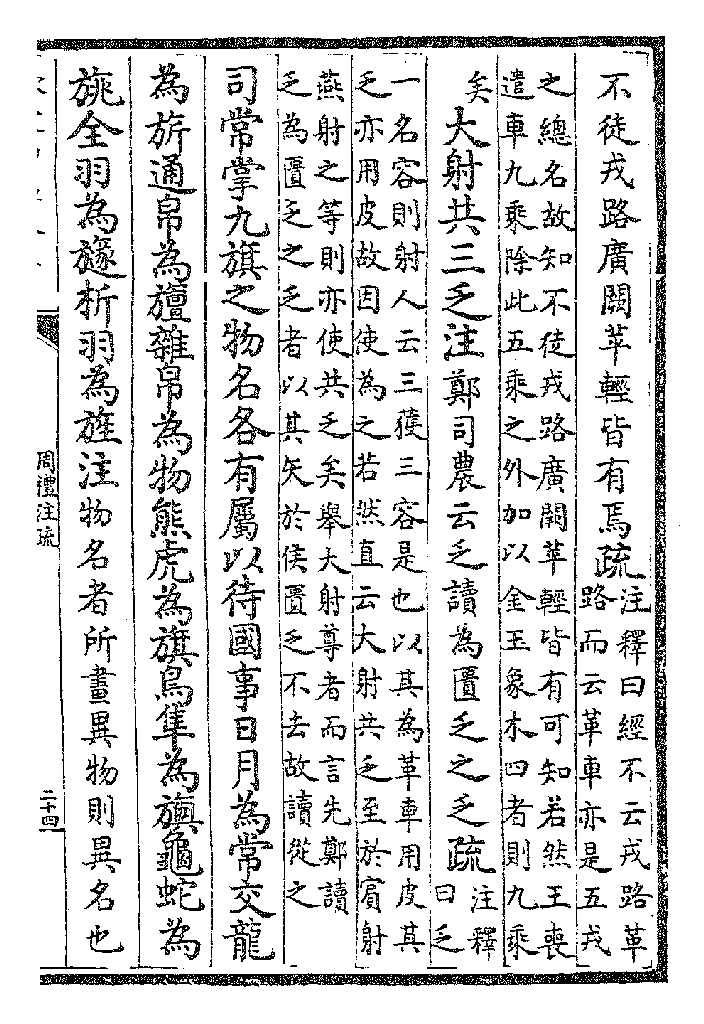 不徒戎路廣闕苹輕皆有焉疏
注釋曰經不云戎路革
路而云革車亦是五戎
之總名故知不徒戎路廣闕苹輕皆有可知若然王喪
遣車九乘除此五乘之外加以金玉象木四者則九乘
矣
大射共三乏注鄭司農云乏讀為匱乏之乏疏
注釋
曰乏
一名容則射人云三獲三容是也以其為革車用皮其
乏亦用皮故因使為之若然直云大射共乏至於賓射
燕射之等則亦使共乏矣舉大射尊者而言先鄭讀
乏為匱乏之乏者以其矢於侯匱乏不去故讀從之
司常掌九旗之物名各有屬以待國事日月為常交龍
為旂通帛為旜雜帛為物熊虎為旗鳥隼為旟龜蛇為
旐全羽為旞析羽為旌注物名者所畫異物則異名也
周禮注疏
二十四